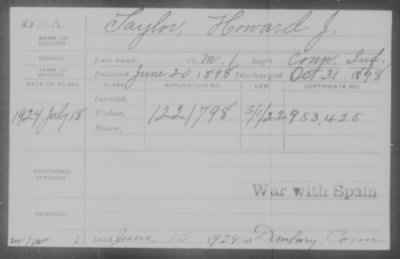 Taylor, Howard J.
NAME OF SOLDIER:
SERVICE: Late rank, Co. M. 1 Reg't Conn. Inf.
TERM OF SERVICE: Enlisted June 20, 1898 Discharged Oct 31, 1898
DATE OF FILING. CLASS. APPLICATION NO. LAW. CERTIFICATE NO.
Invalid,
1924 July 18 Widow, 1221798 953,425
Minor,
ADDITIONAL SERVICES:
War with Spain
REMARKS:
Died June 15, 1924 at Danbury Conn